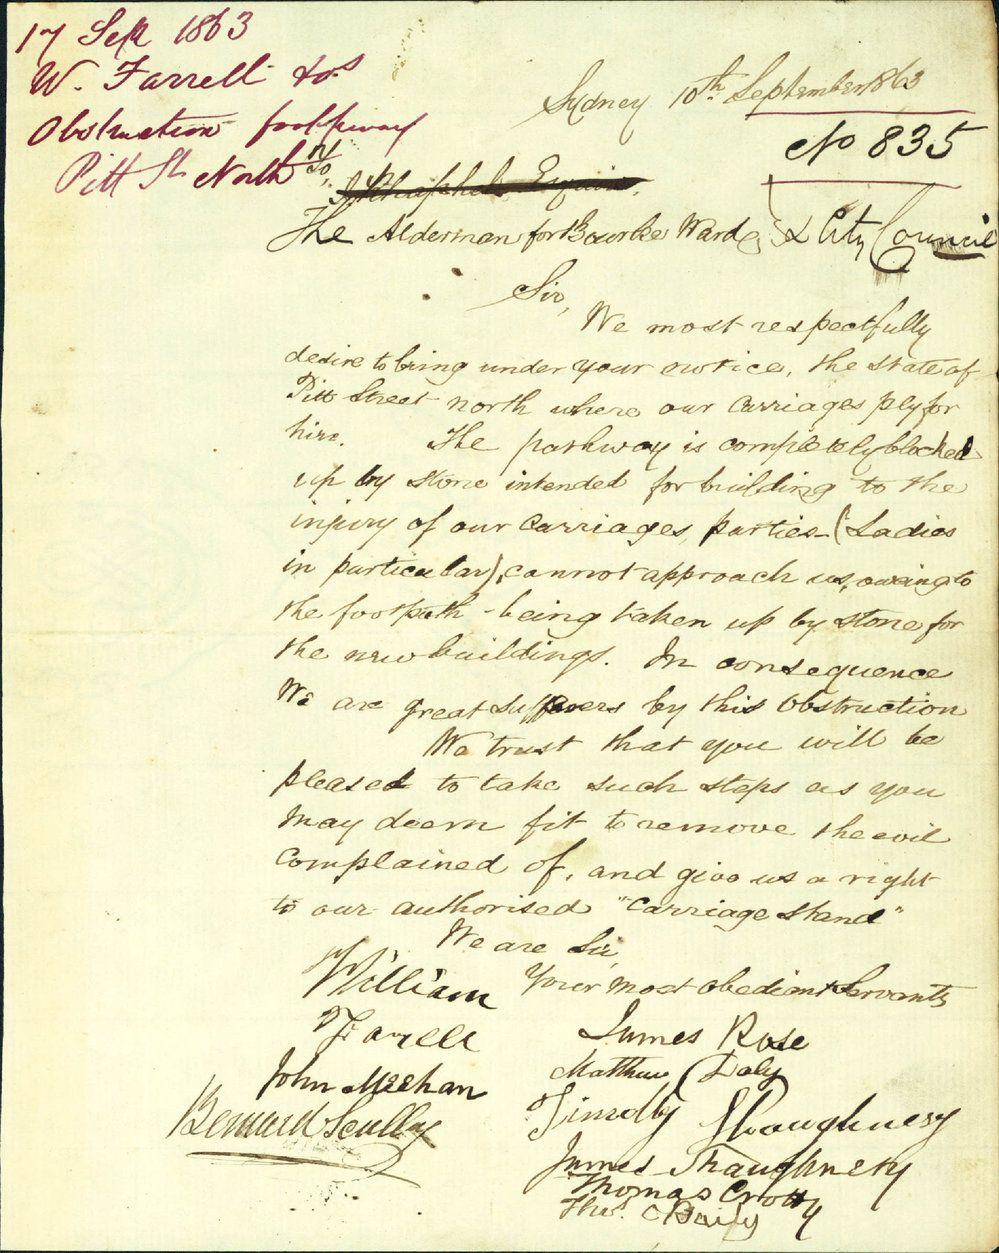 17 Sep 1863
W. Farrell & ors
Obstruction footpway
Pitt St North
Sydney 10th September 1863
No 835
To,
Esquire,
The Alderman for Bourke Ward & City Council
Sir,
We most respectfully
desire to bring under your notice, the state of
Pitt Street north where our Carriages ply for
hire. The pathway is completely blocked
up by stone intended for building to the
injury of our Carriages, parties (Ladies
in particular), cannot approach us, owing to
the footpath - being taken up by stone for
the new buildings. In consequence
We are great sufferers by this Obstruction
We trust that you will be
pleased to take such steps as you
May deem fit to remove the evil
Complained of, and give us a right
to our authorised "Carriage Stand"
We are Sir,
Your most Obedient Servants
William
Farrell
John Meehan
Bernard Scully
James Rose
Matthew Daly
Timothy Shaughnesy
James Shaughnesy
Thomas Crotty
Thos.